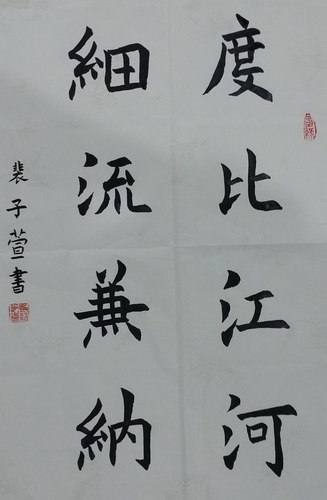 度比江河
細流兼納
裴子萱書